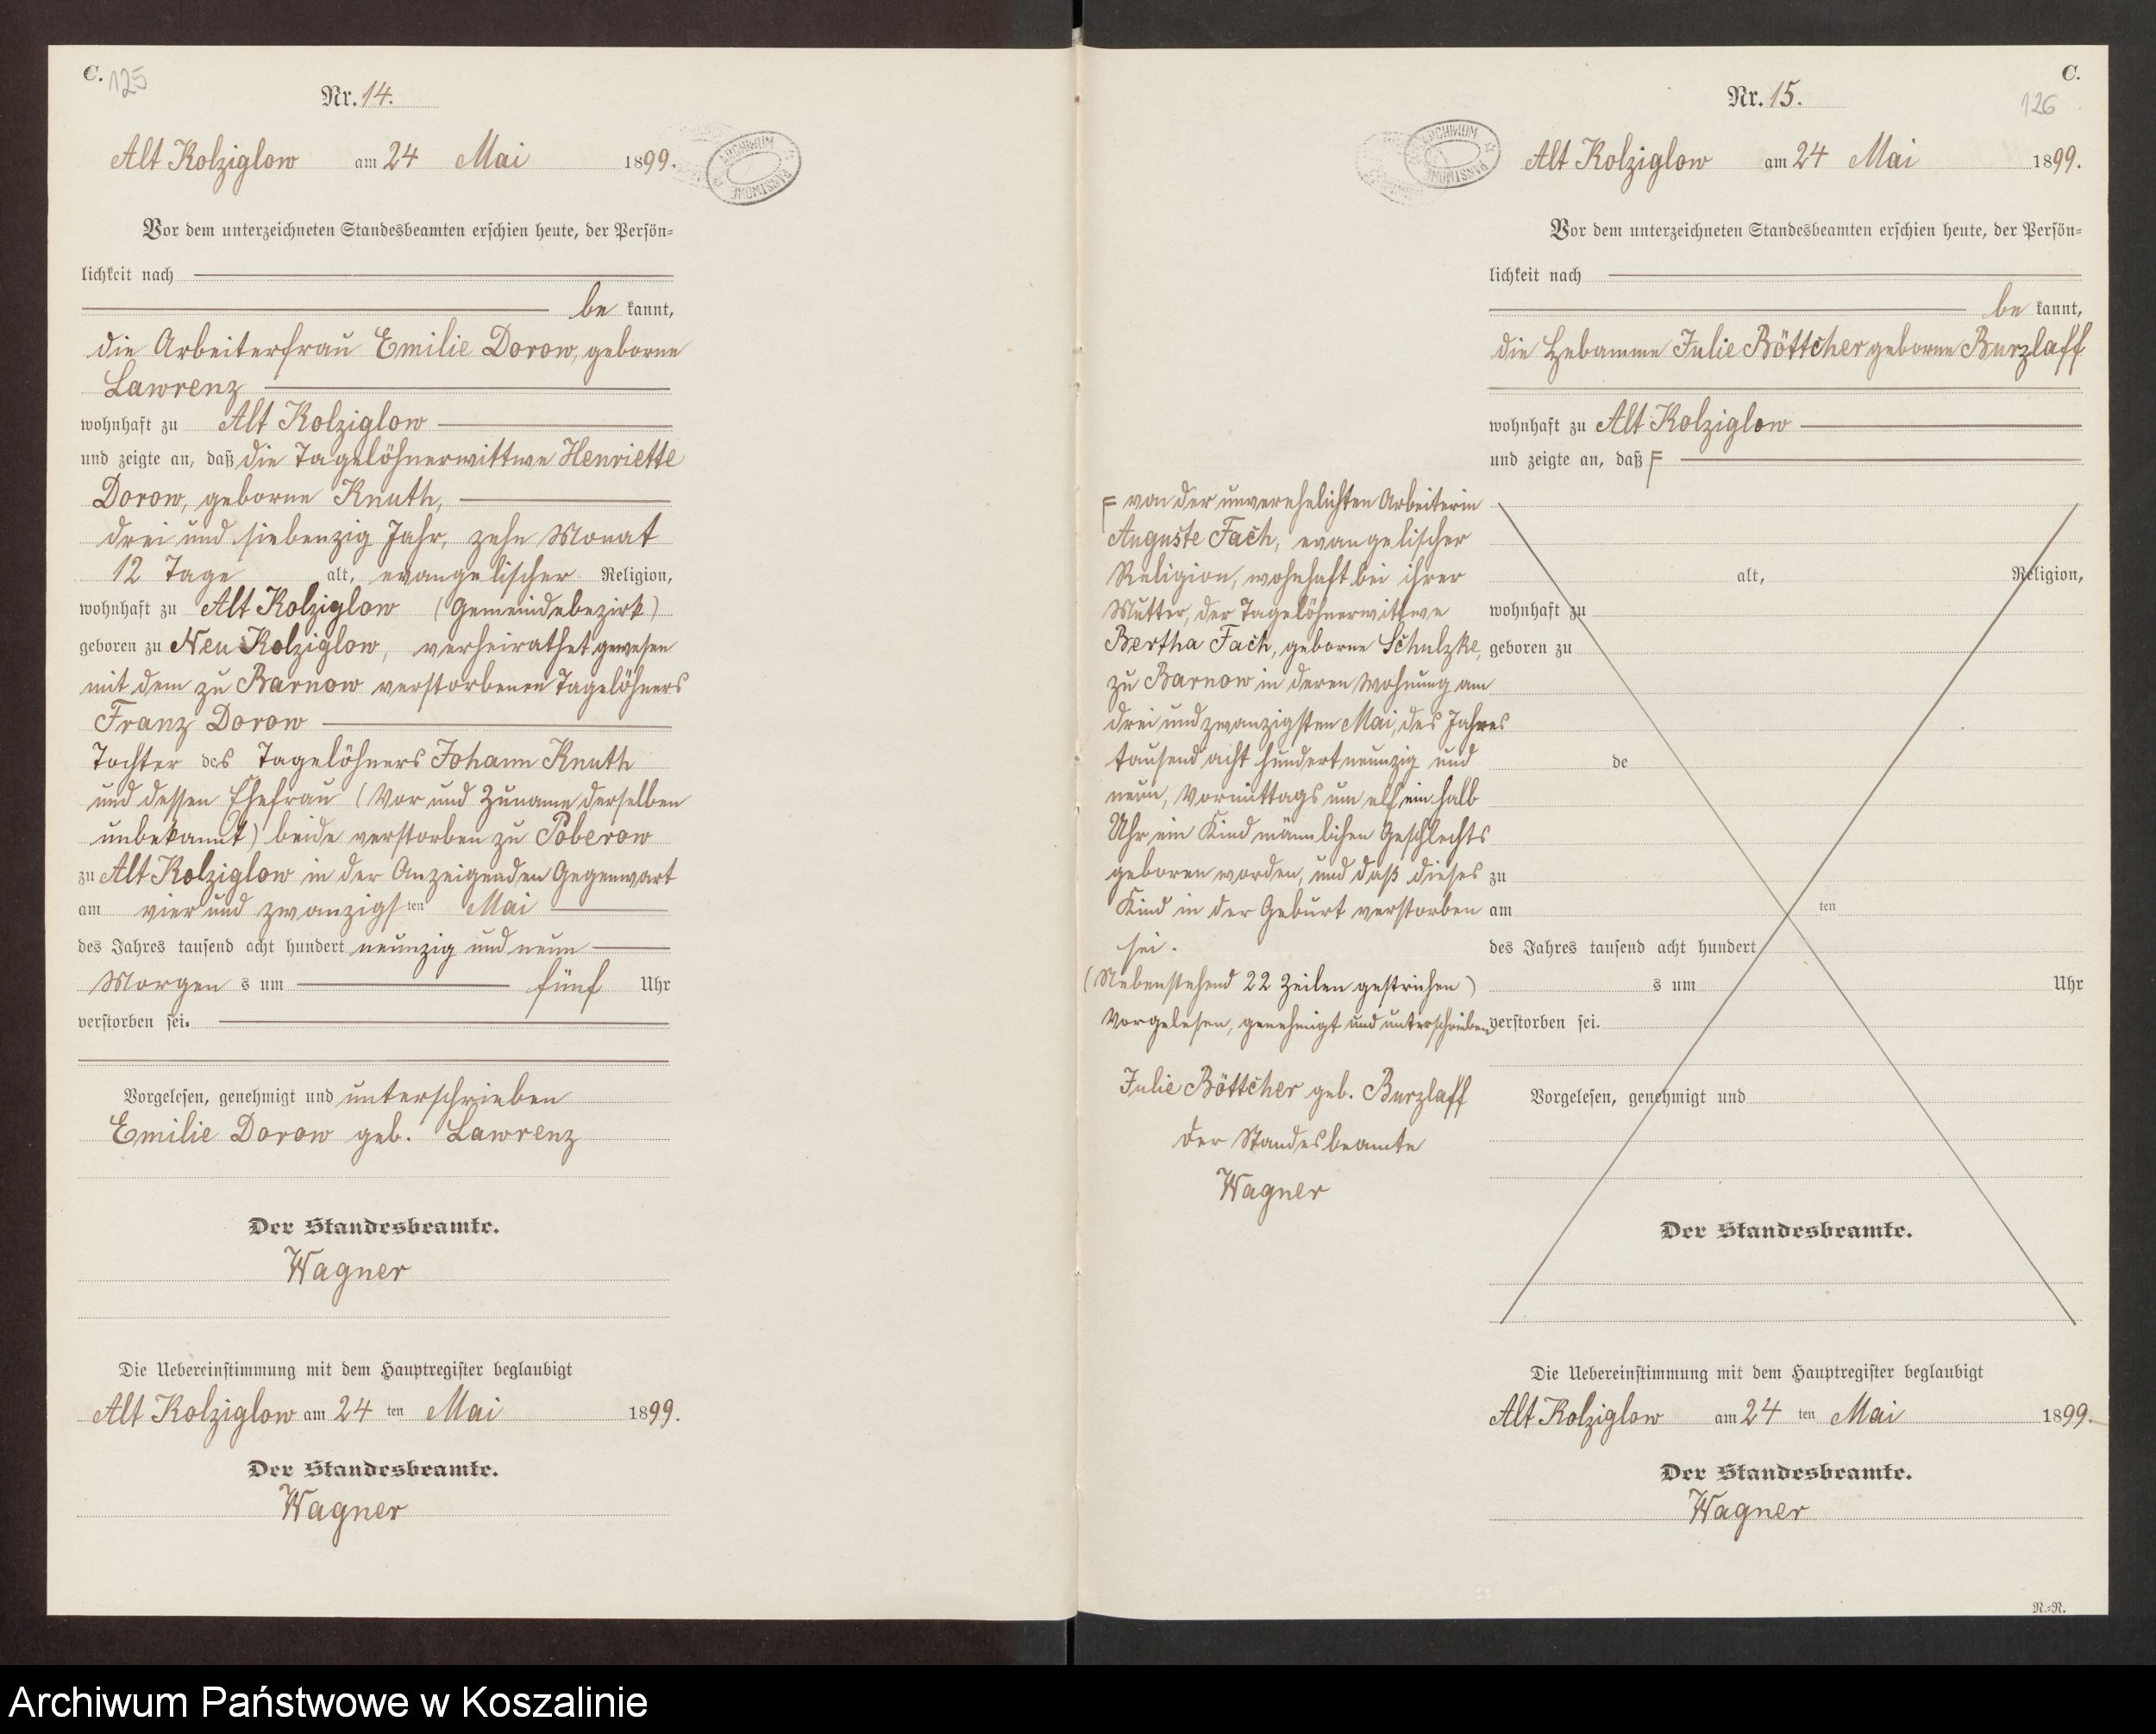 C. 125
Nr. 14.
Alt Kolziglow am 24 Mai 1899.
ARCHIWUM PAŃSTWOWE
Vor dem unterzeichneten Standesbeamten erschien heute, der Persön=
lichkeit nach
be kannt,
die Arbeiterfrau Emilie Dorow, geborne
Lawrenz
wohnhaft zu Alt Kolziglow
und zeigte an, daß die Tagelöhnerwittwe Henriette
Dorow, geborne Knuth,
drei und siebenzig Jahr, zehn Monat
12 Tage alt, evangelischer Religion,
wohnhaft zu Alt Kolziglow (Gemeindebezirk)
geboren zu Neu Kolziglow, verheirathet gewesen
mit dem zu Barnow verstorbenen Tagelöhners
Franz Dorow
Tochter des Tagelöhners Johann Knuth
und dessen Ehefrau (Vor und Zuname derselben
unbekannt) beide verstorben zu Poberow
zu Alt Kolziglow in der Anzeigenden Gegenwart
am vier und zwanzigsten Mai
des Jahres tausend acht hundert neunzig und neun
Morgen s um fünf Uhr
verstorben sei.
Vorgelesen, genehmigt und unterschrieben
Emilie Dorow geb. Lawrenz
Der Standesbeamte.
Wagner
Die Uebereinstimmung mit dem Hauptregister beglaubigt
Alt Kolziglow am 24 ten Mai 1899.
Der Standesbeamte.
Wagner
C.
126
Nr. 15.
ARCHIWUM PAŃSTWOWE
Alt Kolziglow am 24 Mai 1899.
Vor dem unterzeichneten Standesbeamten erschien heute, der Persön=
lichkeit nach
be kannt,
die Hebamme Julie Böttcher geborne Burzlaff
wohnhaft zu Alt Kolziglow
und zeigte an, daß F
F von der unverehelichten Arbeiterin
Auguste Fach, evangelischer
Religion, wohnhaft bei ihrer
Mutter, der Tagelöhnerwittwe
Bertha Fach, geborne Schulzke,
zu Barnow in deren Wohnung am
drei und zwanzigsten Mai, des Jahres
tausend acht hundert neunzig und
neun, Vormittags um elf ein halb
Uhr ein Kind männlichen Geschlechts
geboren worden, und daß dieses
Kind in der Geburt verstorben
sei.
(Nebenstehend 22 Zeilen gestrichen)
Vorgelesen, genehmigt und unterschrieben
Julie Böttcher geb. Burzlaff
Der Standesbeamte
Wagner
alt, Religion,
wohnhaft zu
geboren zu
de
zu
am ten
des Jahres tausend acht hundert
s um Uhr
verstorben sei.
Vorgelesen, genehmigt und
Der Standesbeamte.
Die Uebereinstimmung mit dem Hauptregister beglaubigt
Alt Kolziglow am 24 ten Mai 1899.
Der Standesbeamte.
Wagner
R.=R.
Archiwum Państwowe w Koszalinie